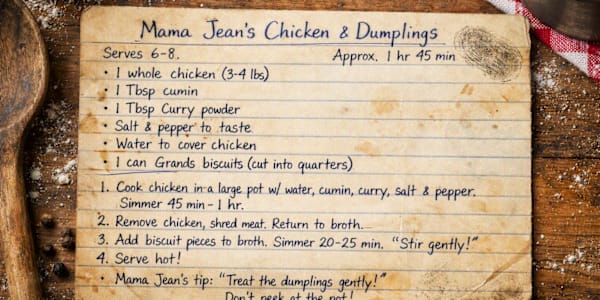 Mama Jean's Chicken & Dumplings
Serves 6-8. Approx. 1 hr 45 min
• 1 whole chicken (3-4 lbs)
• 1 Tbsp cumin
• 1 Tbsp Curry powder
• Salt & pepper to taste
• Water to cover chicken
• 1 can Grands biscuits (cut into quarters)
1. Cook chicken in a large pot w/ water, cumin, curry, salt & pepper.
Simmer 45 min - 1 hr.
2. Remove chicken, shred meat. Return to broth.
3. Add biscuit pieces to broth. Simmer 20-25 min. "Stir gently!"
4. Serve hot!
• Mama Jean's tip: "Treat the dumplings gently!"
Don't peek at the pot!